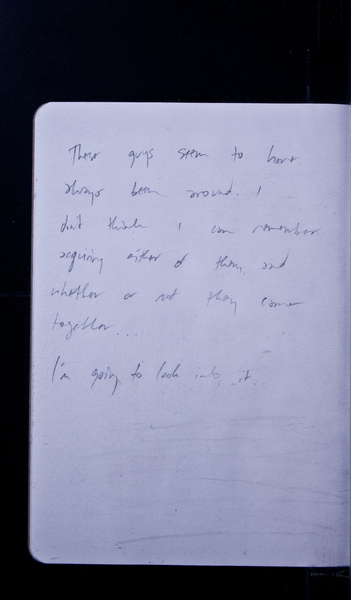 These guys seem to have
always been around. I
don't think I can remember
acquiring either of them, and
whether or not they came
together...
I'm going to look into it.